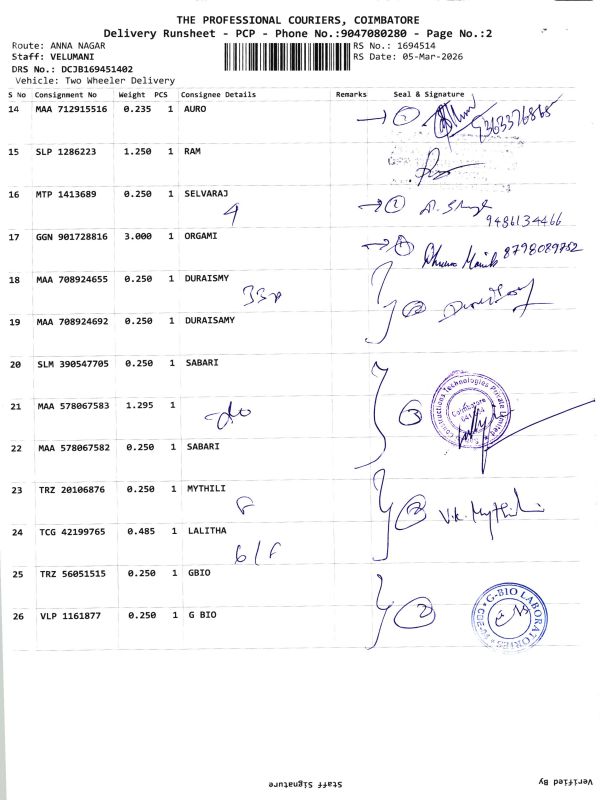 THE PROFESSIONAL COURIERS, COIMBATORE
Delivery Runsheet - PCP - Phone No.:9047080280 - Page No.:2
Route: ANNA NAGAR
RS No.: 1694514
Staff: VELUMANI
RS Date: 05-Mar-2026
DRS No.: DCJB169451402
Vehicle: Two Wheeler Delivery
S No Consignment No Weight PCS Consignee Details Remarks Seal & Signature
14 MAA 712915516 0.235 1 AURO
9363376865
15 SLP 1286223 1.250 1 RAM
16 MTP 1413689 0.250 1 SELVARAJ
4
9486134466
17 GGN 901728816 3.000 1 ORGAMI
8798089752
18 MAA 708924655 0.250 1 DURAISMY
2
19 MAA 708924692 0.250 1 DURAISAMY
20 SLM 390547705 0.250 1 SABARI
21 MAA 578067583 1.295 1
-do
3
Technologies Private Limited
Coimbatore
22 MAA 578067582 0.250 1 SABARI
23 TRZ 20106876 0.250 1 MYTHILI
2 V.K. Mythili
24 TCG 42199765 0.485 1 LALITHA
25 TRZ 56051515 0.250 1 GBIO
26 VLP 1161877 0.250 1 G BIO
2
G-BIO LABORATORIES
Staff Signature
Verified By